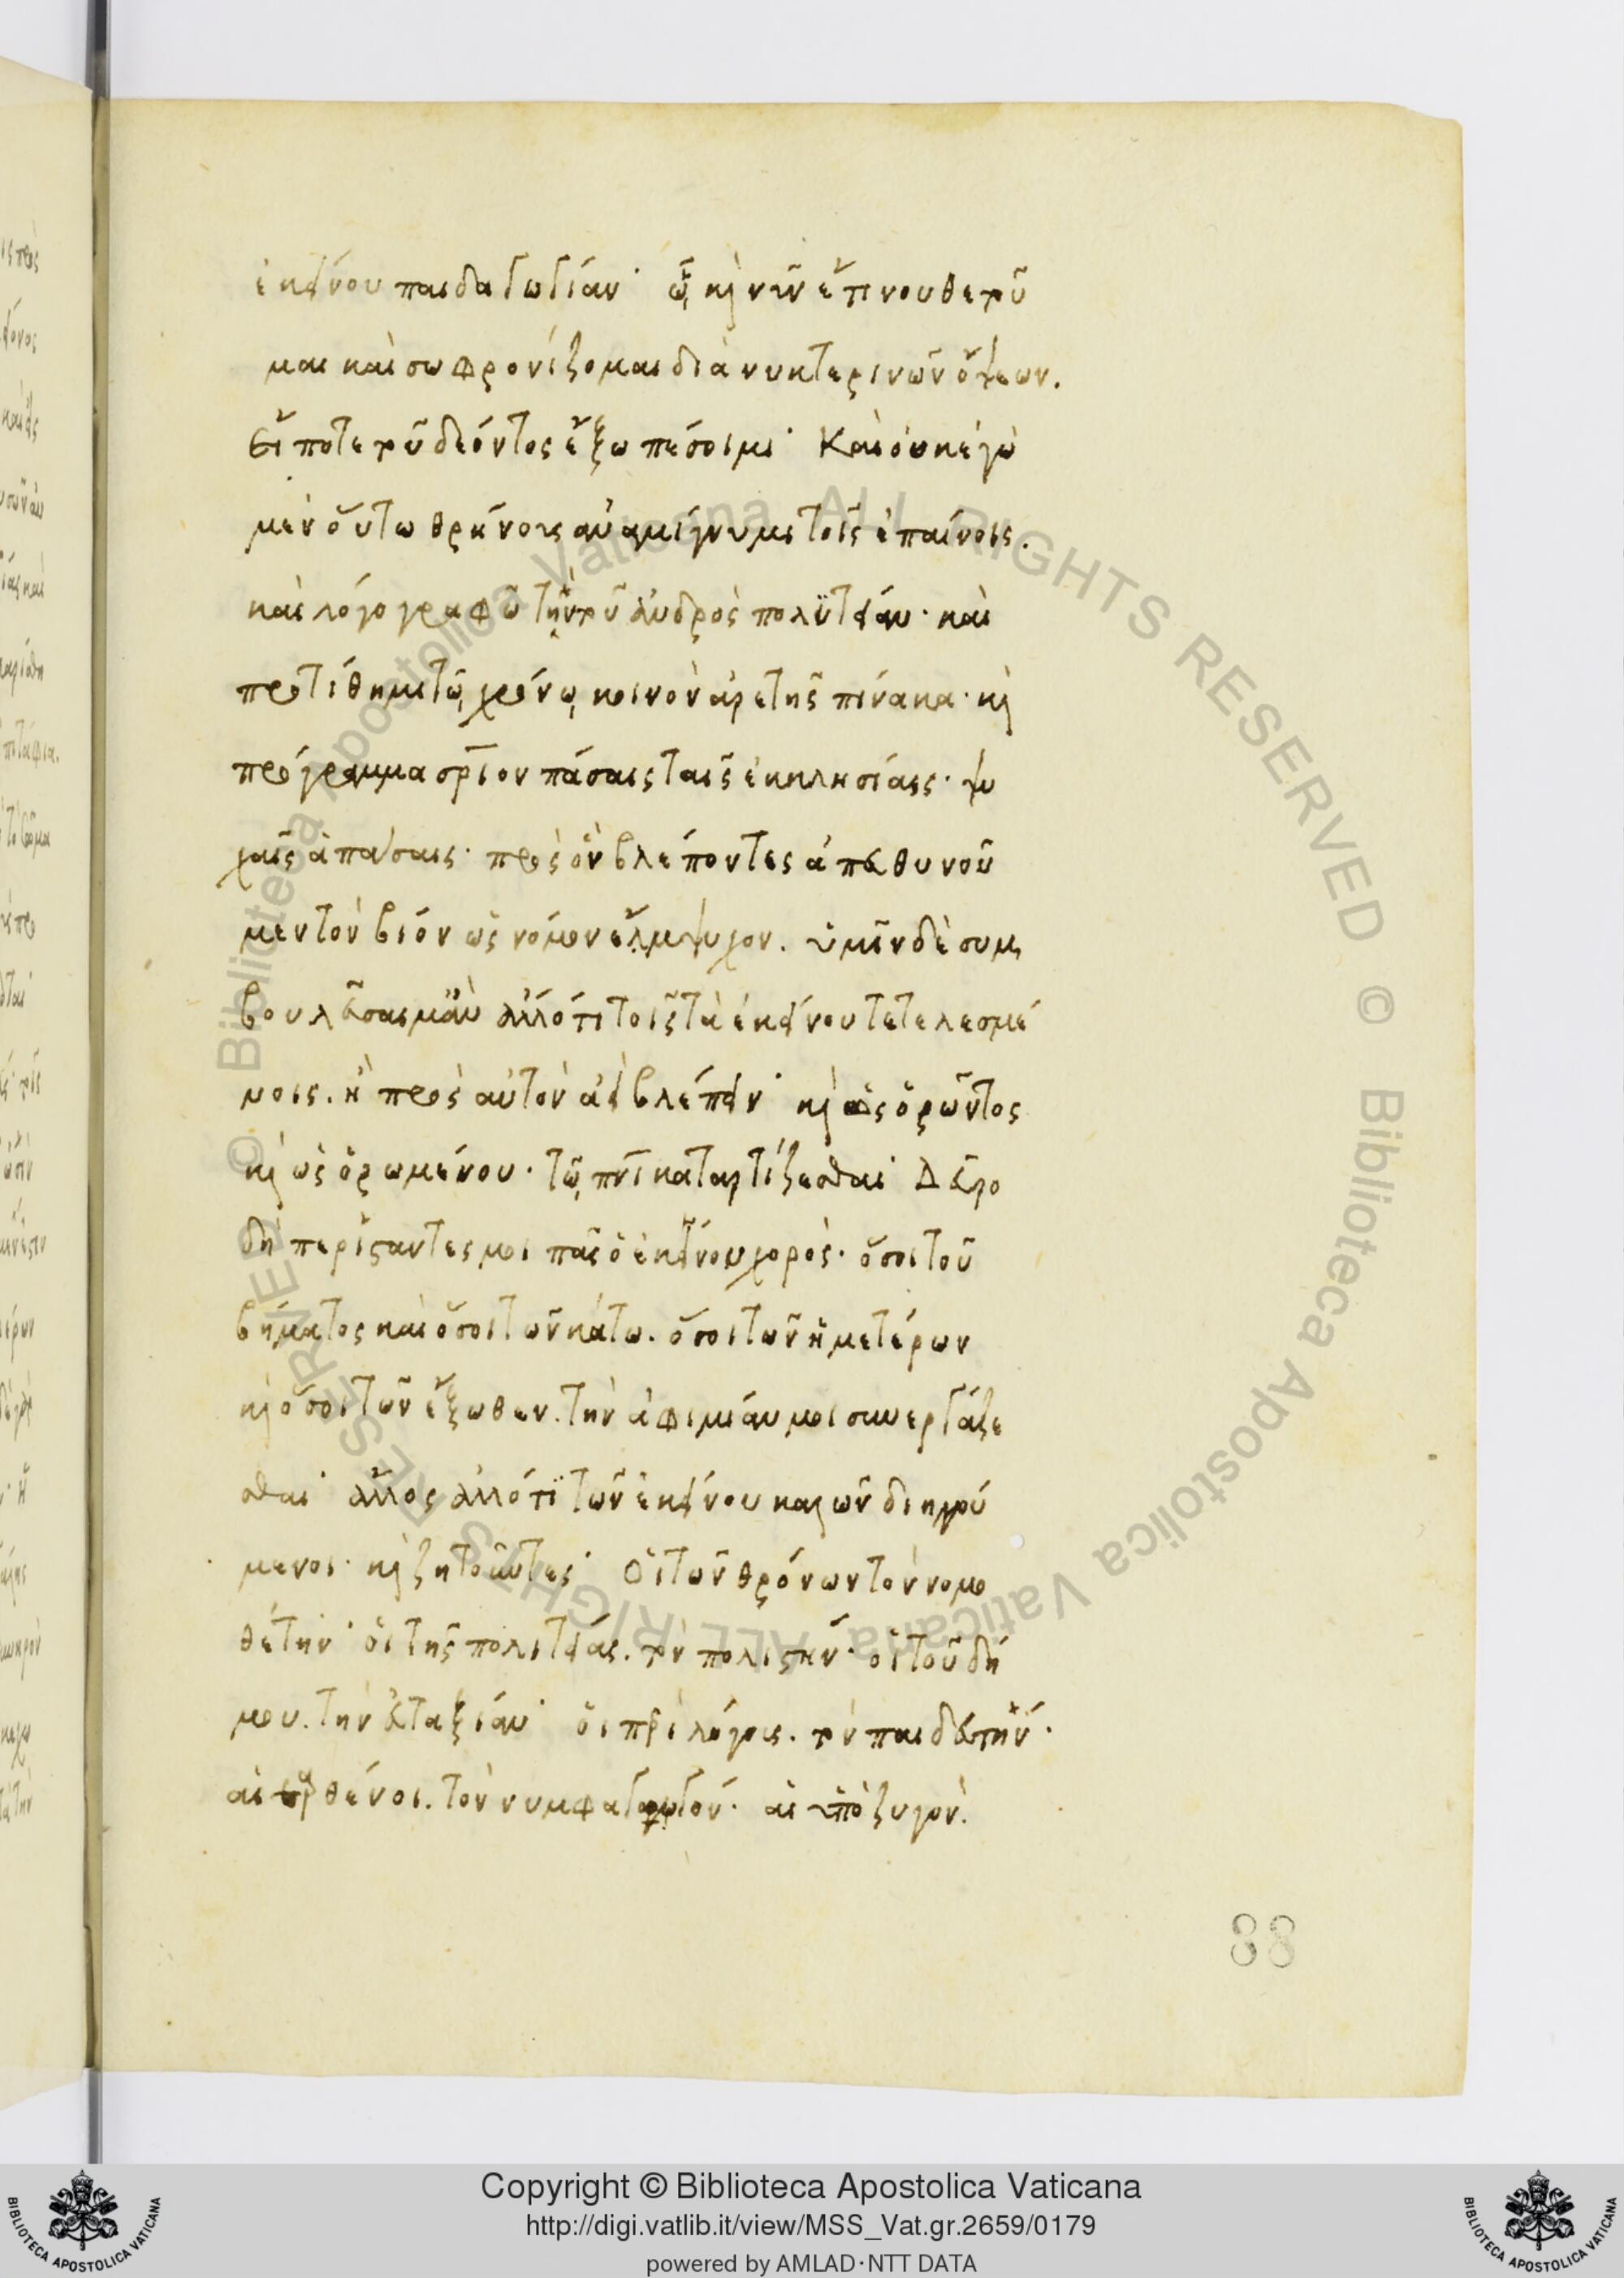 ἐκείνου παιδαγωγίαν· ᾧ καὶ νῦν ἔτι νουθετοῦ
μαι καὶ σωφρονίζομαι διὰ νυκτερινῶν ὄψεων.
εἴ ποτε τοῦ δέοντος ἔξω πέσοιμι· Καὶ οὐκ ἐγὼ
μὲν οὕτω θρήνοις ἀναμίγνυμι τοῖς ἐπαίνοις.
καὶ λόγο γραφῶ τὴν τοῦ ἀνδρὸς πολϊτείαν· καὶ
προτίθημι τῷ χρόνῳ κοινὸν ἀρετῆς πίνακα· καὶ
πρόγραμμα σριον πάσαις ταῖς ἐκκλησίαις· ψυ
χαῖς ἁπάσαις· πρὸς ὃν βλέποντες ἀπευθυνοῦ
μεν τὸν βίον ὡς νόμον ἔμψυχον. ὑμῖν δὲ συμ
βουλεύσαιμ' ἂν ἄλλό τι τοῖς τὰ ἐκείνου τετελεσμέ
νοις. ἢ πρὸς αὐτὸν ἀεὶ βλέπειν· καὶ ὡς ὁρῶντος
καὶ ὡς ὁρωμένου· τῷ πνι καταρτίζεσθαι· Δεῦρο
δὴ περιστάντες μοι πᾶς ὁ ἐκείνου χορὸς· ὅσοι τοῦ
βήματος καὶ ὅσοι τῶν κάτω. ὅσοι τῶν ἡμετέρων
καὶ ὅσοι τῶν ἔξωθεν. τὴν εὐφημίαν μοι συνεργάζε
σθαι· ἄλλος ἄλλό τϊ τῶν ἐκείνου καλῶν διηγού
μενοι· καὶ ζητοῦντες· Οἱ τῶν θρόνων τὸν νομο
θέτην· οἱ τῆς πολιτείας. τὸν πολιστήν· οἱ τοῦ δή
μου. τὴν εὐταξίαν· οἱ περὶ λόγους. τὸν παιδευτήν·
αἱ παρθένοι. τὸν νυμφαγωγόν· αἱ ὑπὸ ζυγὸν.
88
Copyright © Biblioteca Apostolica Vaticana
http://digi.vatlib.it/view/MSS_Vat.gr.2659/0179
powered by AMLAD·NTT DATA